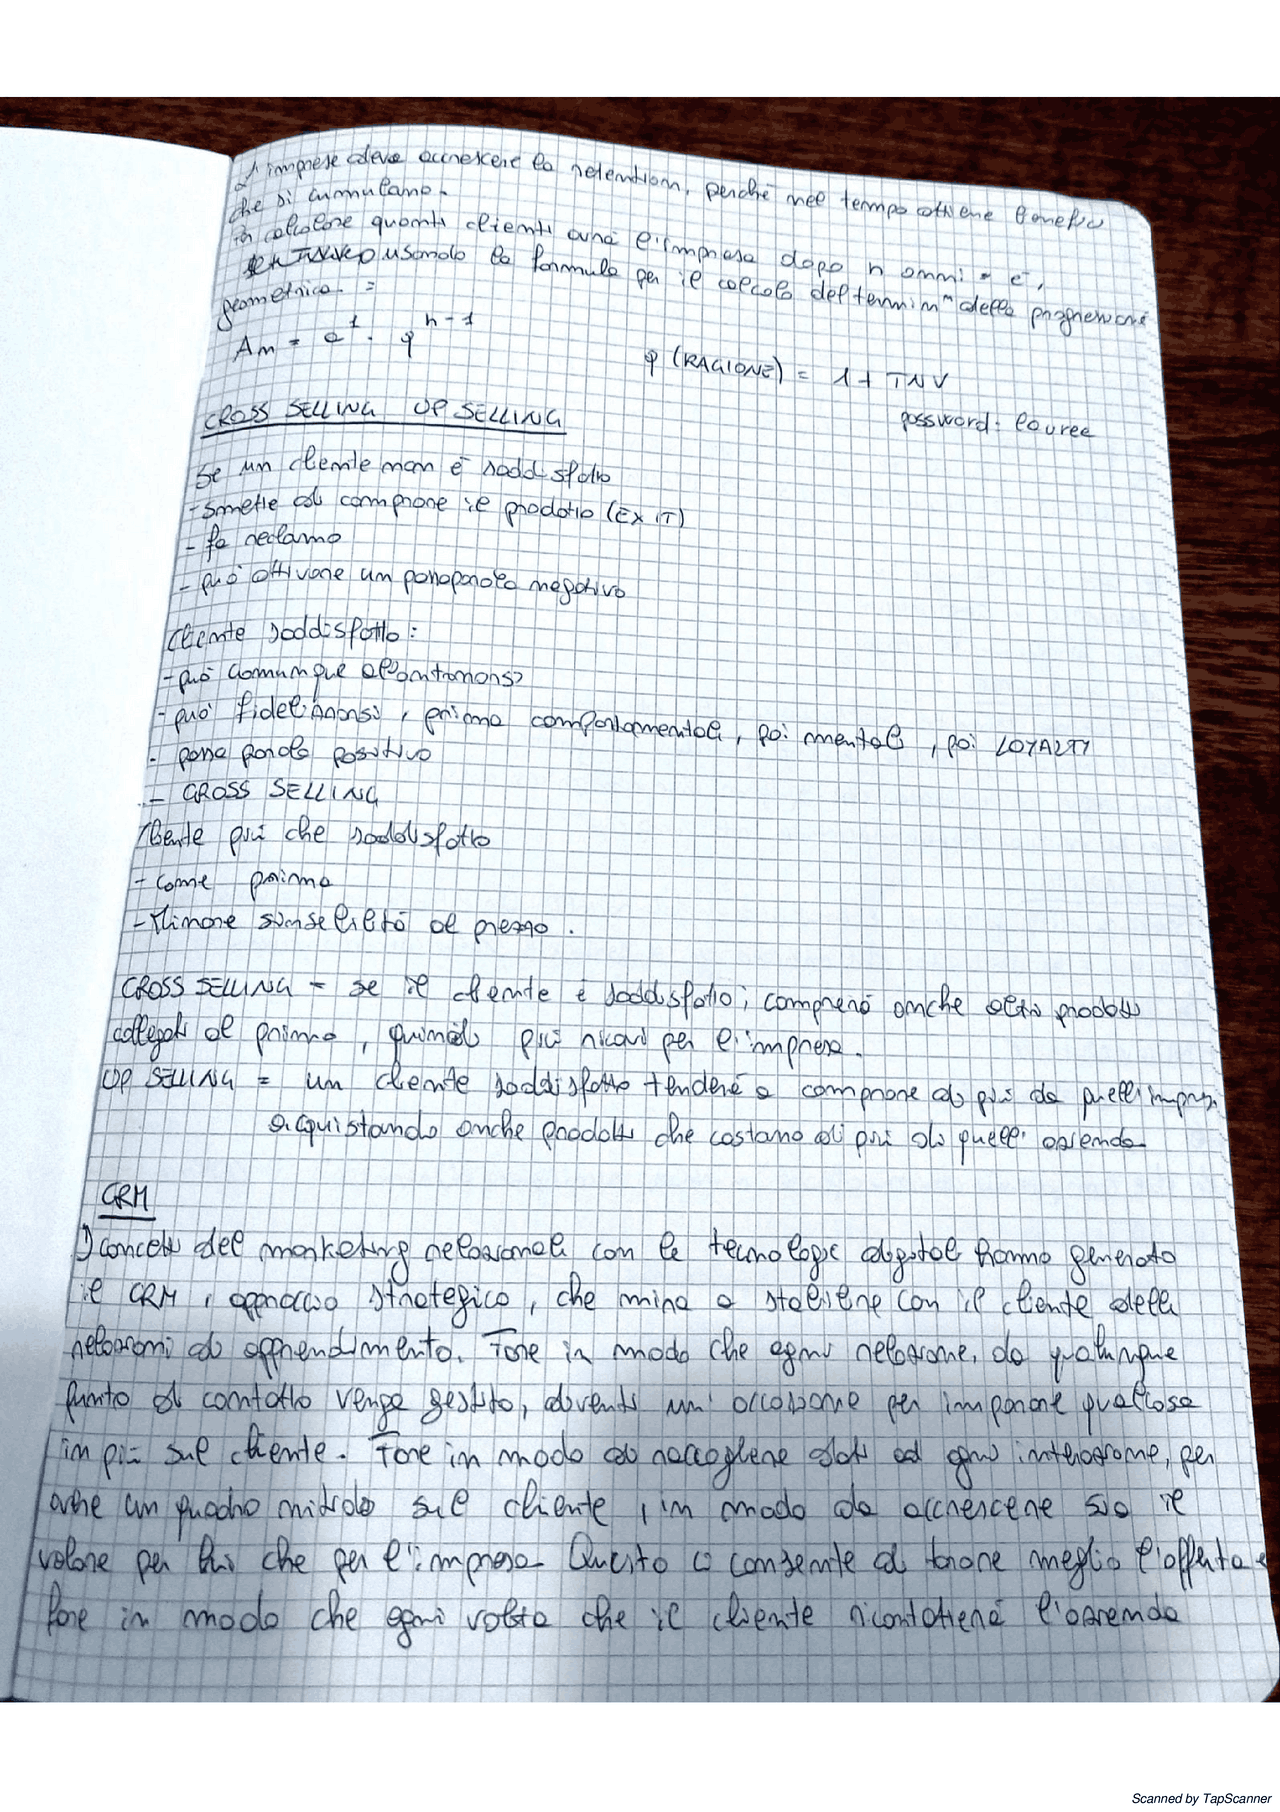 L'impresa deve accrescere la retention, perché nel tempo ottiene benefici
che si cumulano.
calcolare quanti clienti avrà l'impresa dopo n anni = è,
usando la formula per il calcolo del termin** della progressione
geometrica. =
An = a1 . q n-1
q (RAGIONE) = 1 + TNV
password: laurea
CROSS SELLING UP SELLING
Se un cliente non è soddisfatto
- smette di comprare il prodotto (EXIT)
- fa reclamo
- può attivare un passaparola negativo
Cliente soddisfatto:
- può comunque allontanarsi
- può fidelizzarsi, prima comportamentale, poi mentale, poi LOYALTY
- passa parola positivo
- CROSS SELLING
Cliente più che soddisfatto
- come prima
- Minore sensibilità al prezzo.
CROSS SELLING = se il cliente è soddisfatto, comprerà anche altri prodotti
collegati al primo, quindi più ricavi per l'impresa.
UP SELLING = un cliente soddisfatto tenderà a comprare di più da quell'impresa
acquistando anche prodotti che costano di più di quell'azienda
CRM
I concetti del marketing relazionale con le tecnologie digitali hanno generato
il CRM, approccio strategico, che mira a stabilire con il cliente delle
relazioni di apprendimento. Fare in modo che ogni relazione, da qualunque
punto di contatto venga gestito, diventi un'occasione per imparare qualcosa
in più sul cliente. Fare in modo di raccogliere dati ad ogni interazione, per
avere un quadro nitido sul cliente, in modo da accrescere sia il
valore per lui che per l'impresa. Questo ci consente di tarare meglio l'offerta e
fare in modo che ogni volta che il cliente ricontatterà l'azienda
Scanned by TapScanner